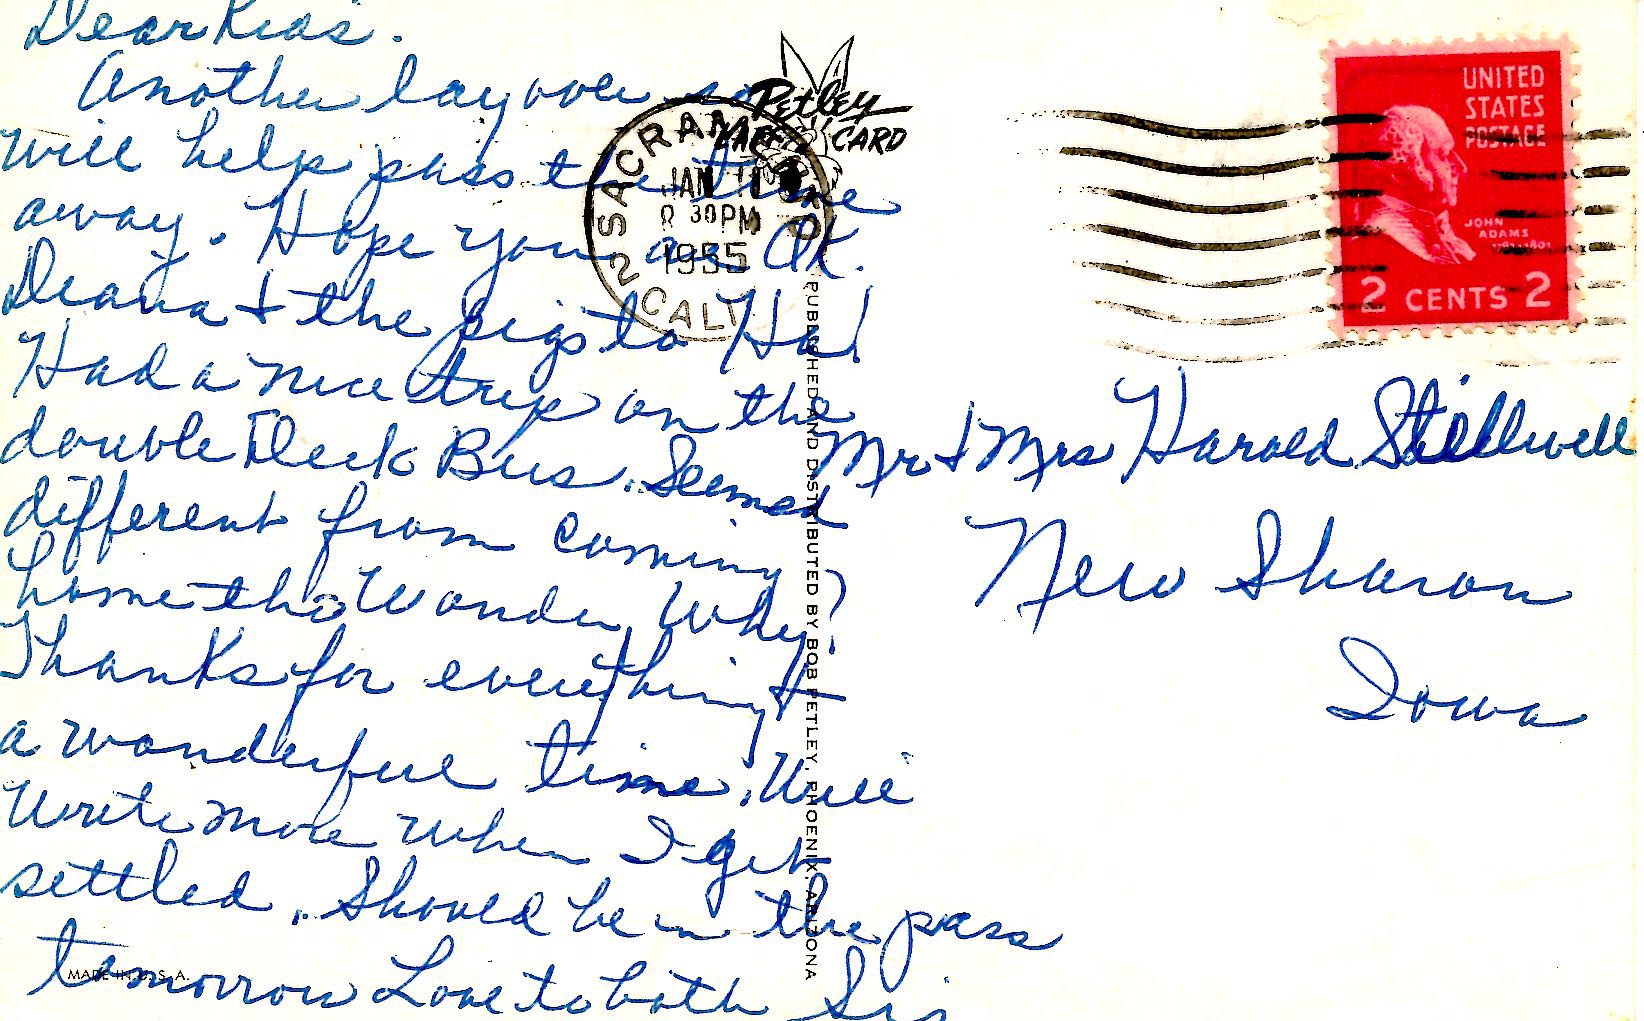 Dear Kids.
Another layover so
will help pass the time
away. Hope you are OK.
Deana + the pigs to Ha!
Had a nice trip on the
double Deck Bus. Seemed
different from coming
home tho Wonder Why?
Thanks for everything +
a wonderful time. Will
Write more when I get
settled. Should be in the pass
tomorrow Love to both Sis
MADE IN U.S.A.
Petley
CARD
SACRAMENTO
JAN
30PM
1955
2
CALIF
PUBLISHED AND DISTRIBUTED BY BOB PETLEY, PHOENIX, ARIZONA
UNITED
STATES
POSTAGE
JOHN
ADAMS
1797-1801
2 CENTS 2
Mr + Mrs Harold Stillwell
New Sharon
Iowa